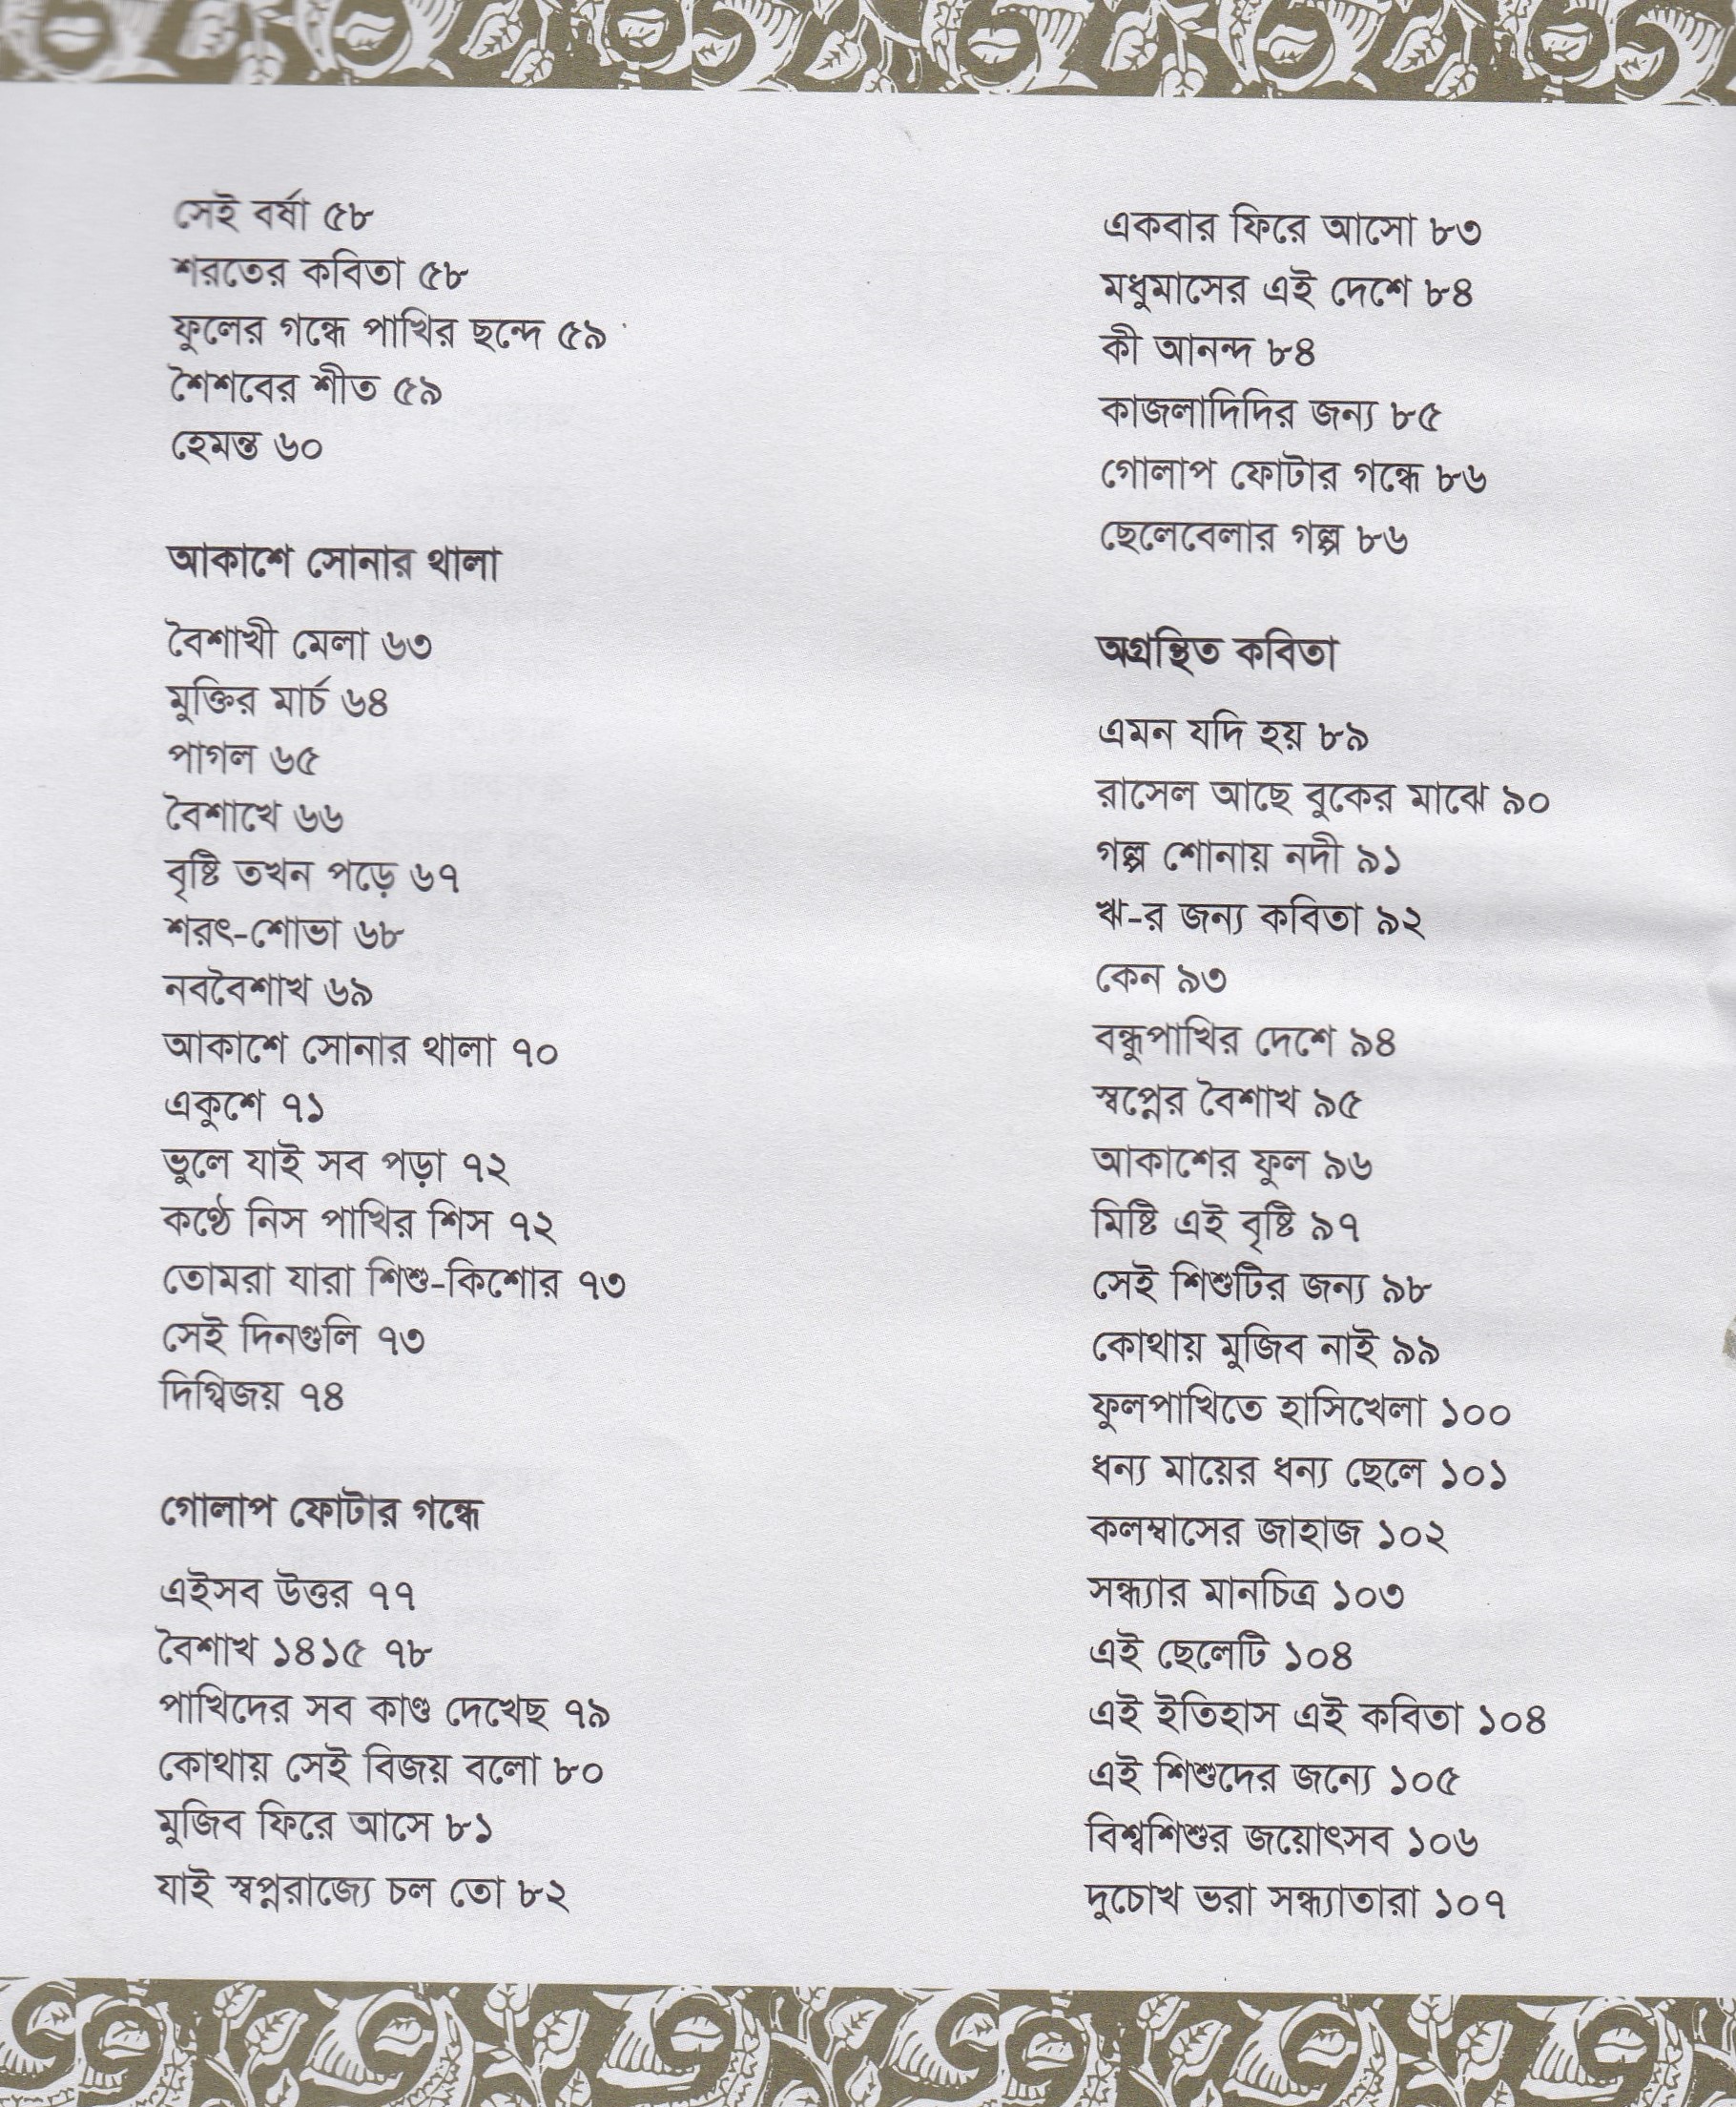 সেই বর্ষা ৫৮
শরতের কবিতা ৫৮
ফুলের গন্ধে পাখির ছন্দে ৫৯
শৈশবের শীত ৫৯
হেমন্ত ৬০
আকাশে সোনার থালা
বৈশাখী মেলা ৬৩
মুক্তির মার্চ ৬৪
পাগল ৬৫
বৈশাখে ৬৬
বৃষ্টি তখন পড়ে ৬৭
শরৎ-শোভা ৬৮
নববৈশাখ ৬৯
আকাশে সোনার থালা ৭০
একুশে ৭১
ভুলে যাই সব পড়া ৭২
কণ্ঠে নিস পাখির শিস ৭২
তোমরা যারা শিশু-কিশোর ৭৩
সেই দিনগুলি ৭৩
দিগ্বিজয় ৭৪
গোলাপ ফোটার গন্ধে
এইসব উত্তর ৭৭
বৈশাখ ১৪১৫ ৭৮
পাখিদের সব কাণ্ড দেখেছ ৭৯
কোথায় সেই বিজয় বলো ৮০
মুজিব ফিরে আসে ৮১
যাই স্বপ্নরাজ্যে চল তো ৮২
একবার ফিরে আসো ৮৩
মধুমাসের এই দেশে ৮৪
কী আনন্দ ৮৪
কাজলাদিদির জন্য ৮৫
গোলাপ ফোটার গন্ধে ৮৬
ছেলেবেলার গল্প ৮৬
অগ্রন্থিত কবিতা
এমন যদি হয় ৮৯
রাসেল আছে বুকের মাঝে ৯০
গল্প শোনায় নদী ৯১
ঋ-র জন্য কবিতা ৯২
কেন ৯৩
বন্ধুপাখির দেশে ৯৪
স্বপ্নের বৈশাখ ৯৫
আকাশের ফুল ৯৬
মিষ্টি এই বৃষ্টি ৯৭
সেই শিশুটির জন্য ৯৮
কোথায় মুজিব নাই ৯৯
ফুলপাখিতে হাসিখেলা ১০০
ধন্য মায়ের ধন্য ছেলে ১০১
কলম্বাসের জাহাজ ১০২
সন্ধ্যার মানচিত্র ১০৩
এই ছেলেটি ১০৪
এই ইতিহাস এই কবিতা ১০৪
এই শিশুদের জন্যে ১০৫
বিশ্বশিশুর জয়োৎসব ১০৬
দুচোখ ভরা সন্ধ্যাতারা ১০৭